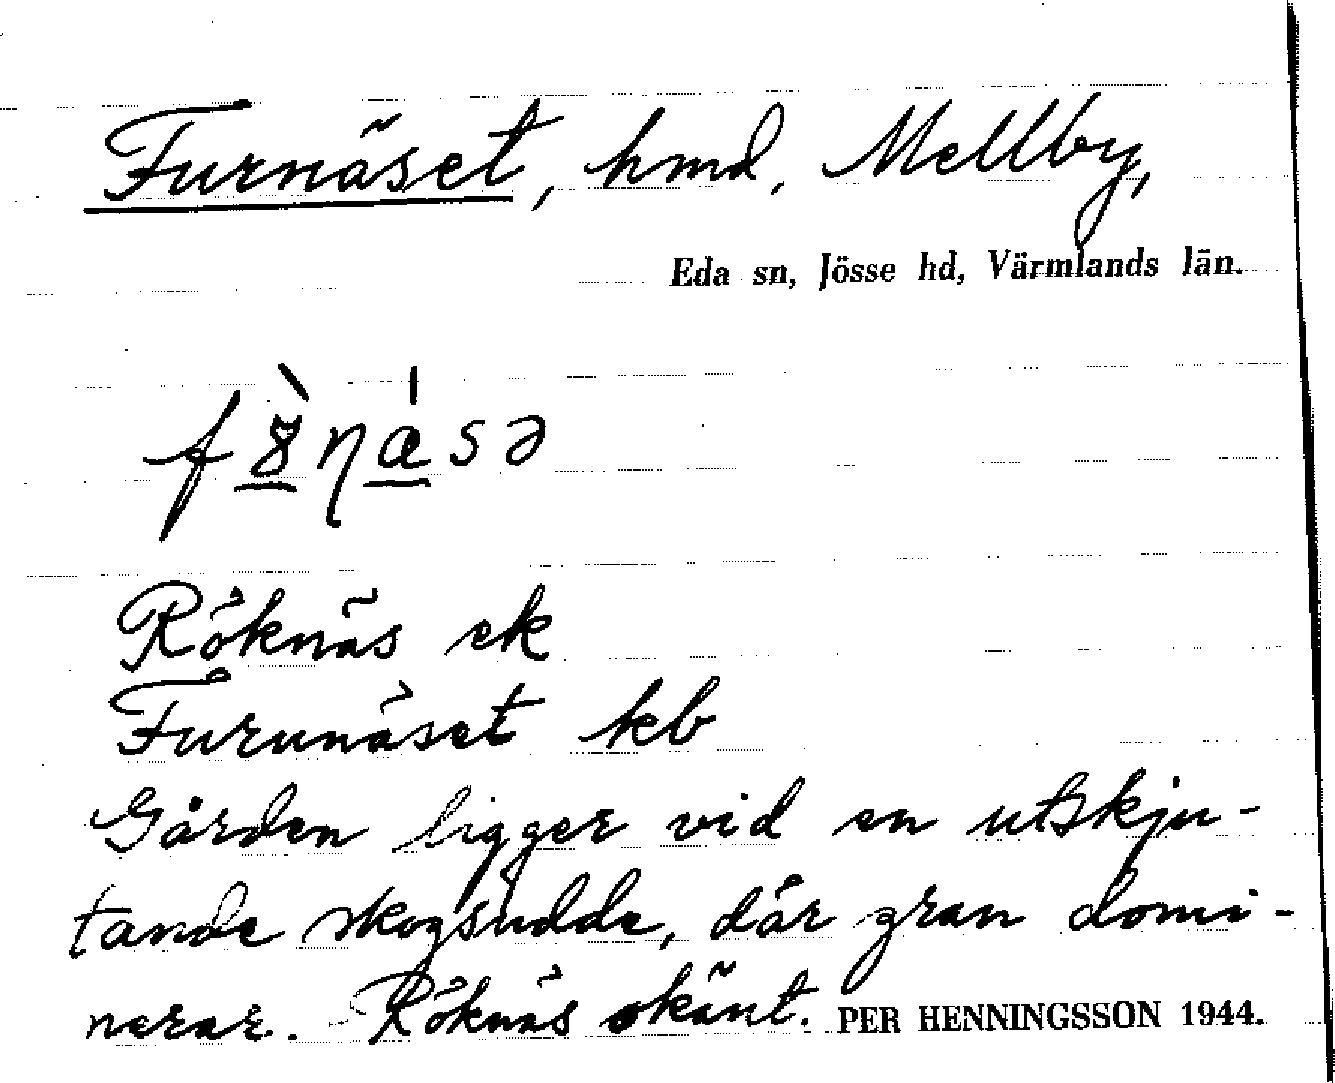 Furnäset, hmd, Mellby,
Eda sn, Jösse hd, Värmlands län.
Röknäs ek
Furunäset kb
Gården ligger vid en utskju-
tande skogsudde, där gran domi-
nerar. - Röknäs okänt. PER HENNINGSSON 1944.